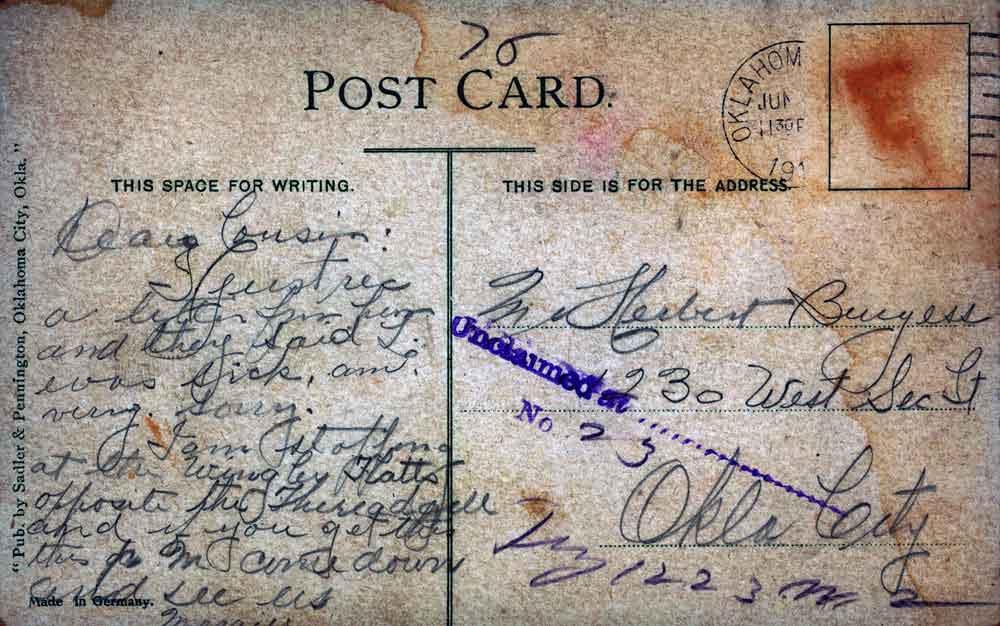 70
POST CARD.
OKLAHOM
JUN
11 30 P
191
THIS SPACE FOR WRITING.
THIS SIDE IS FOR THE ADDRESS.
"Pub. by Sadler & Pennington, Oklahoma City, Okla."
Dear Cousin:
I just rec
a letter from
and they said
was sick. am
very. sorry.
I am stopping
at the Flatts
opposite the
and if you get this
this P M come down
and see us
Made in Germany.
Mr Herbert Burgess
Unclaimed at
230 West Sec St
No 23
Okla City
Try 1223 M